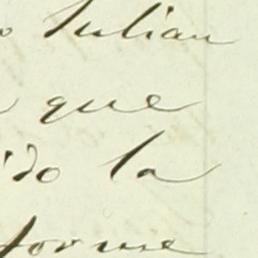 o Julian
que
ido la
forme